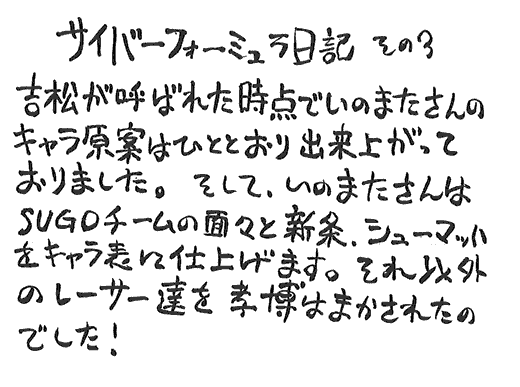 サイバーフォーミュラ日記 その3
吉松が呼ばれた時点でいのまたさんの
キャラ原案はひととおり出来上がって
おりました。そして、いのまたさんは
SUGOチームの面々と新条、シューマッハ
をキャラ表に仕上げます。それ以外
のレーサー達を孝博はまかされたの
でした！